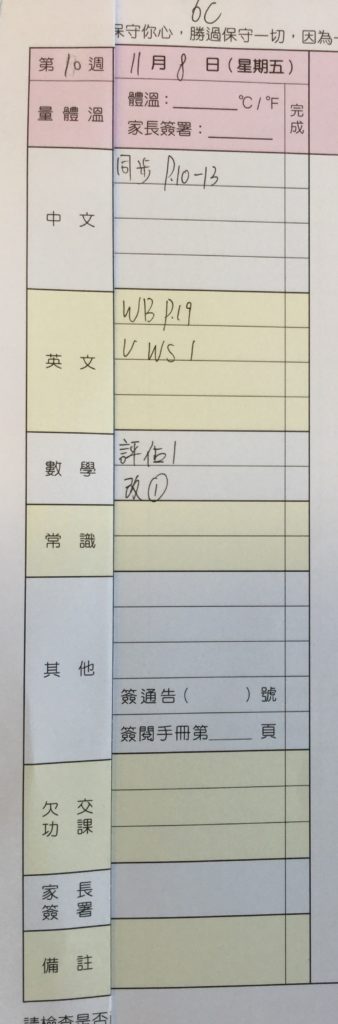 6C
保守你心，勝過保守一切，因為一
第 10 週 11 月 8 日 (星期五)
量體溫 體溫：______ ℃/℉ 完成
家長簽署：______
中文 同步 P.10-13
英文 WB P.19
V WS 1
數學 評估1
改①
常識
其他
簽通告( )號
簽閱手冊第____ 頁
欠交功課
家長簽署
備註
請檢查是否